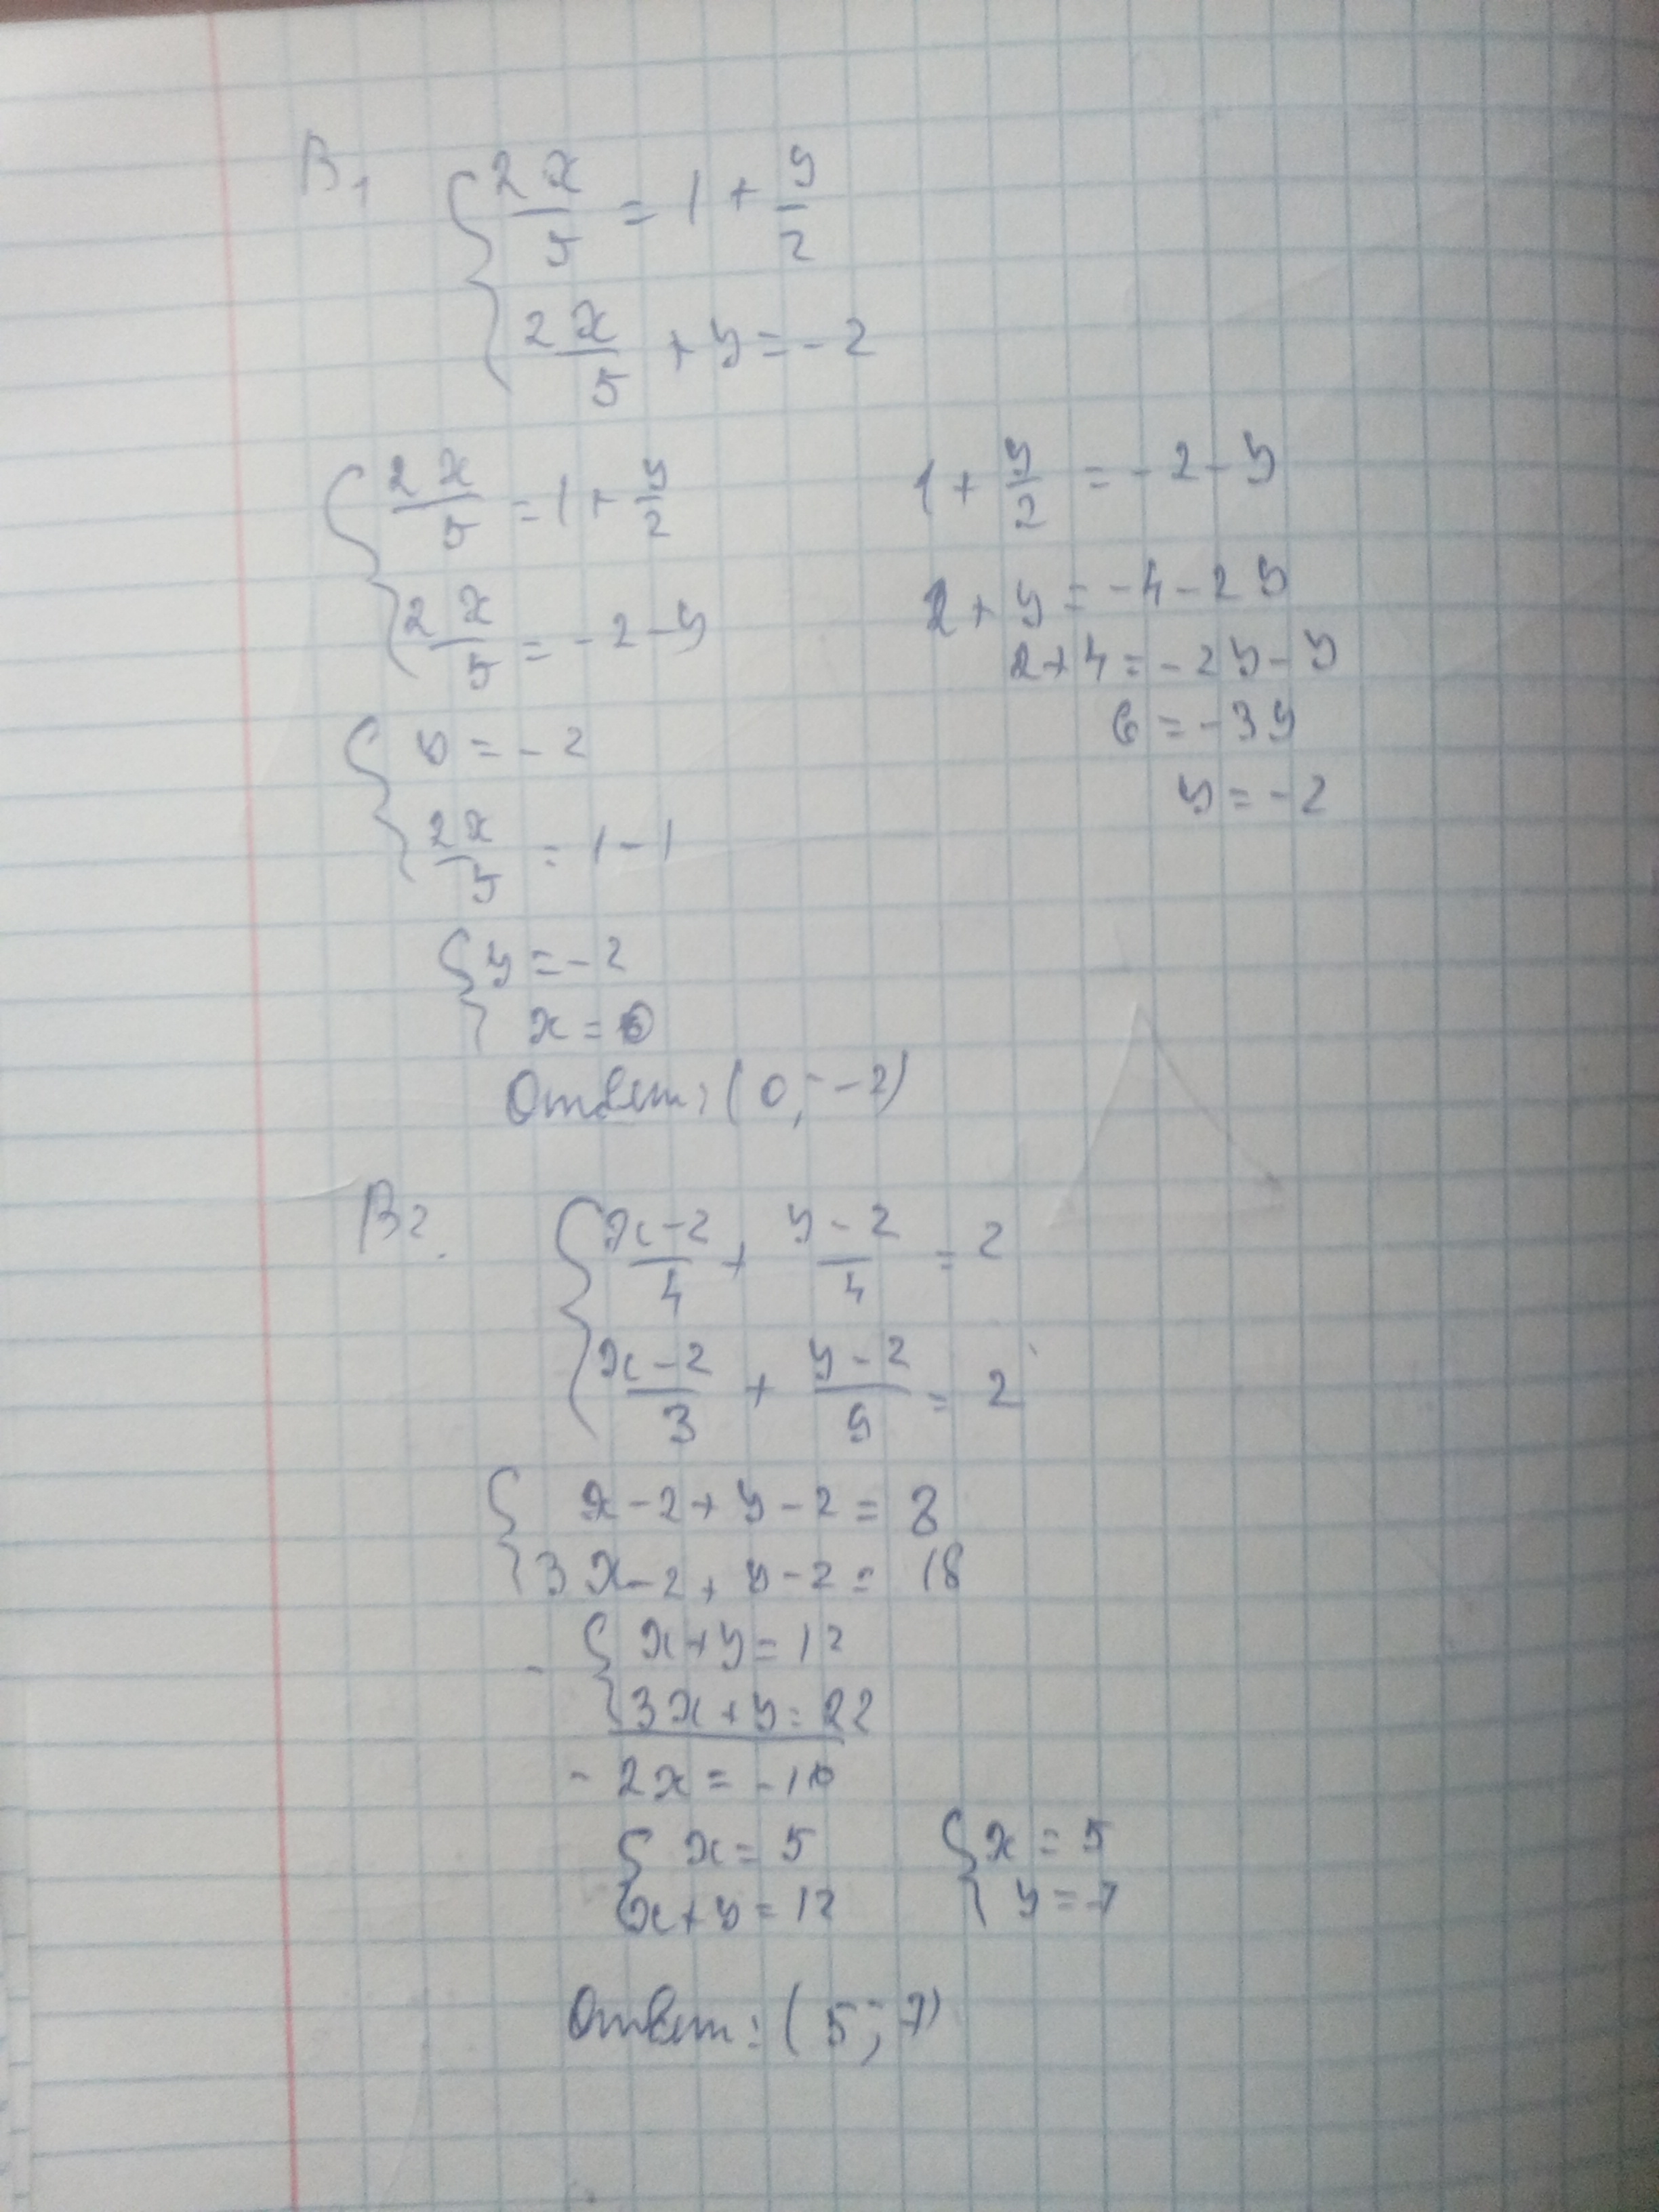 В1 { 2x/5 = 1 + y/2
2x/5 + y = -2
{ 2x/5 = 1 + y/2
2x/5 = -2 - y
1 + y/2 = -2 - y
2 + y = -4 - 2y
2 + 4 = -2y - y
6 = -3y
y = -2
{ y = -2
2x/5 = 1 - 1
{ y = -2
x = 0
Ответ: (0; -2)
В2. { x-2/4 + y-2/4 = 2
x-2/3 + y-2/9 = 2
{ x - 2 + y - 2 = 8
3x - 2 + y - 2 = 18
- { x + y = 12
3x + y = 22
- 2x = -10
{ x = 5
x + y = 12
{ x = 5
y = 7
Ответ: (5; 7)